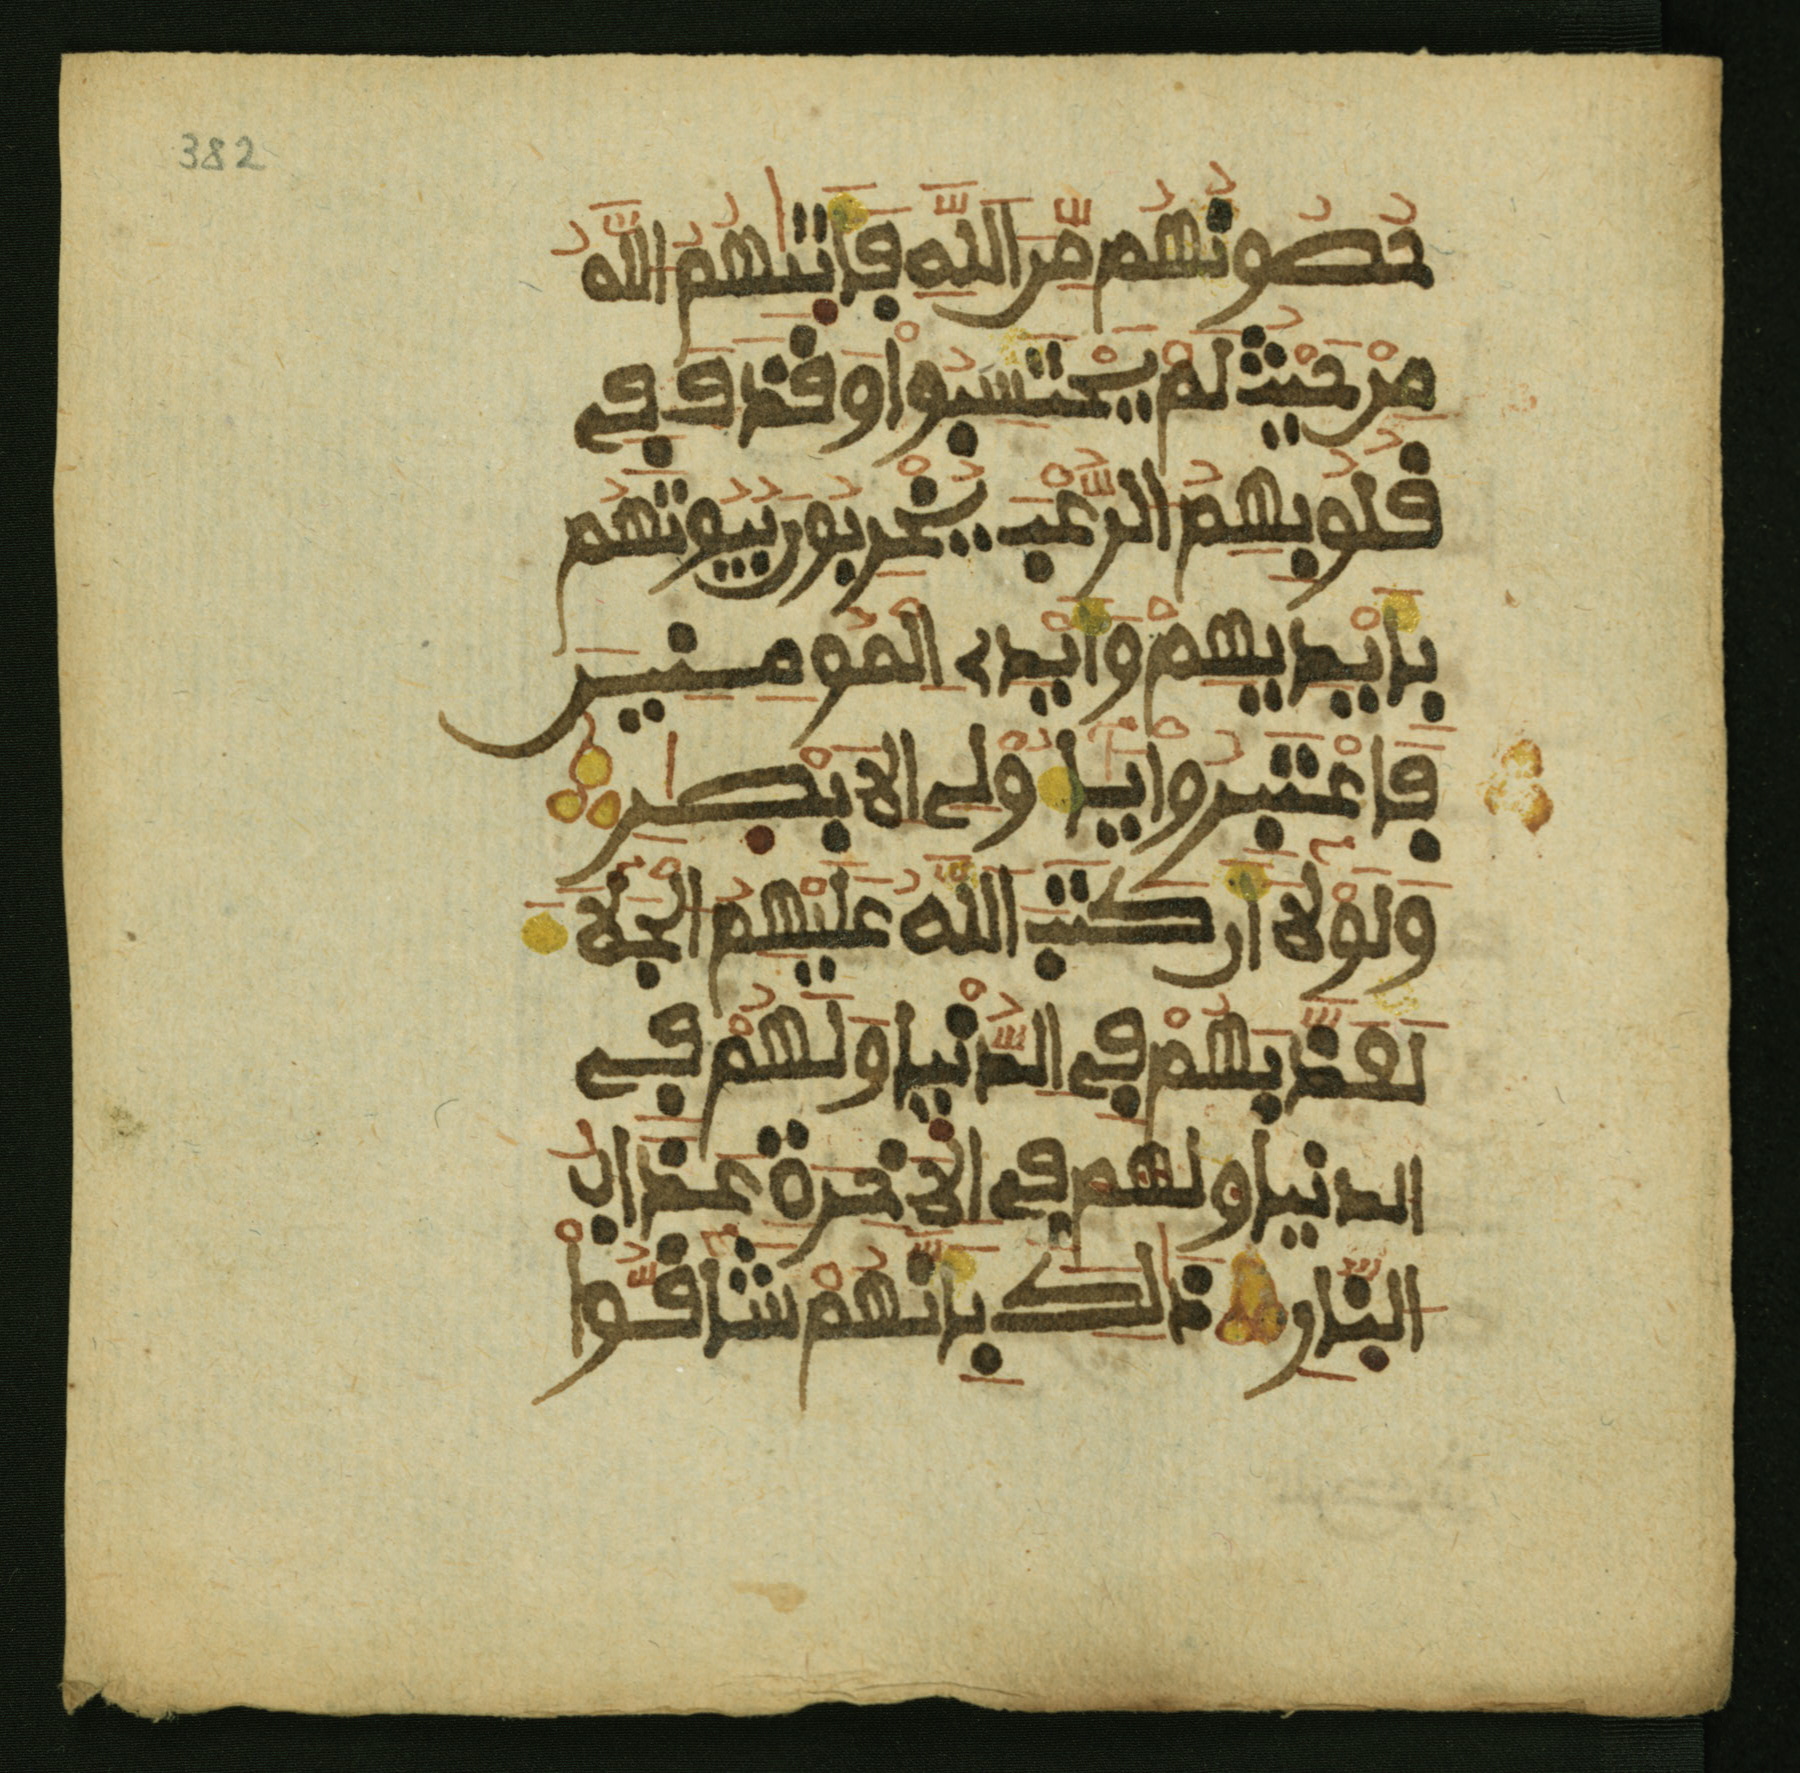 382
حُصُونُهُم مِّنَ اللَّهِ فَأَتَىٰهُمُ اللَّهُ
مِنْ حَيْثُ لَمْ يَحْتَسِبُواْ وَقَذَفَ فِي
قُلُوبِهِمُ الرُّعْبَ يُخْرِبُونَ بُيُوتَهُم
بِأَيْدِيهِمْ وَأَيْدِے الْمُومِنِينَ
فَاعْتَبِرُواْ يَٰأُوْلِي الْأَبْصَٰرِ
وَلَوْلَا أَن كَتَبَ اللَّهُ عَلَيْهِمُ الْجَلَاءَ
لَعَذَّبَهُمْ فِي الدُّنْيَا وَلَهُمْ فِي
الدنيا ولهم فِي الْأَخِرَةِ عَذَابُ
النَّارِ ذَٰلِكَ بِأَنَّهُمْ شَاقُّواْ